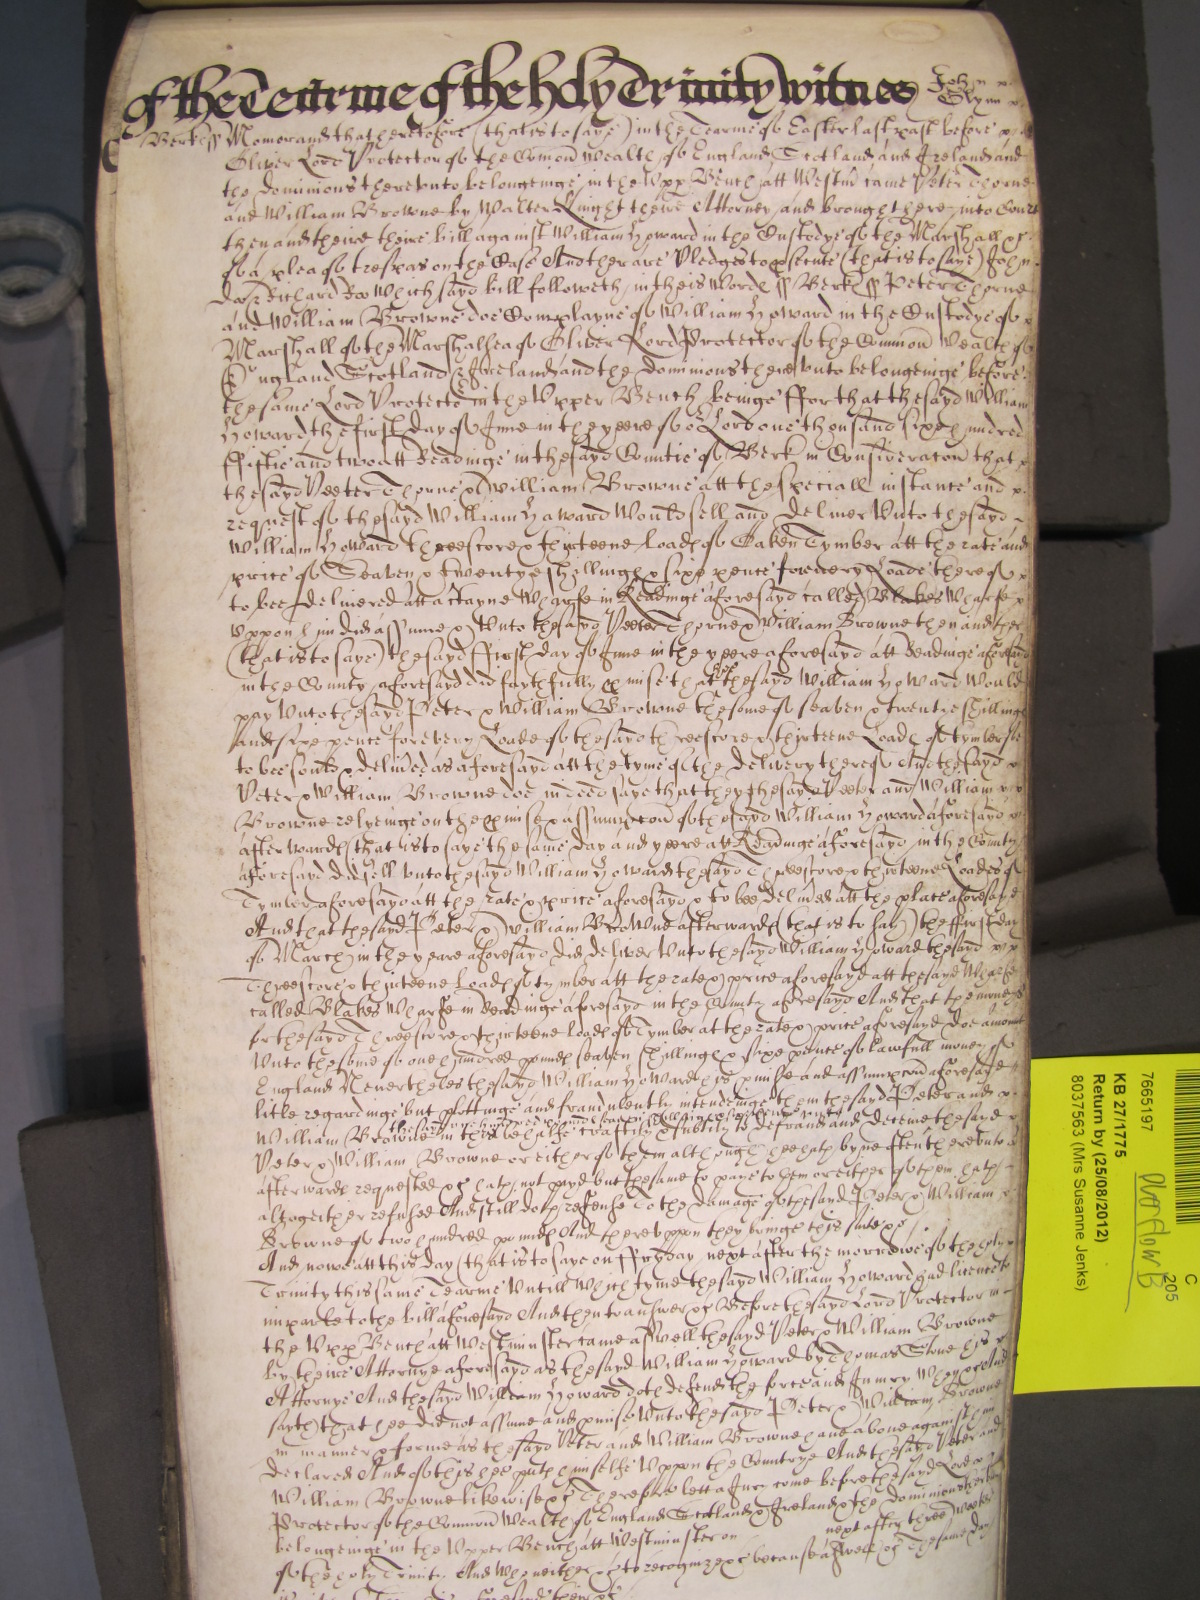 of the Tearme of the holy Trinity witnes John Glynn
Berk ss Memorand that heretofore (that is to saye) in the Tearme of Easter last past before
Oliver Lord Protector of the Comon Wealth of England Scotland and Ireland and
the dominions thereunto belongeinge in the Upp Bench att Westm came Peter Thorne
and William Browne by Walter Knight theire Attorney and brought here into Court
then and theire theire bill against William Howard in the Custodye of the Marshall &c
of a plea of trespas on the Case And there are Pledges to psecute (that is to saye) John
Doe & Richard Roo Which sayd bill followeth in theis Words ss Berk ss Peter Thorne
and William Browne doe Complayne of William Howard in the Custodye of
Marshall of the Marshalsea of Oliver Lord Protector of the Common Wealth of
England Scotland & Ireland and the dominions there unto belongeinge before
the same Lord Protector in the Upper Bench beinge ffor that the sayd William
Howard the first day of June in the yeere of o Lord one thousand six hundred
ffiftie and two att Readinge in the sayd Countie of Berk in Consideracon that
the sayd Peeter Thorne & William Browne att the speciall instance and
request of the sayd William Howard Would sell and deliver Unto the sayd
William Howard threescore & thirteene Loads of Oaken Tymber att the rate and
price of Seaven & twentye shillings & sixe pence for every Loade thereof
to bee delivered att a certayne Wharfe in Readinge aforesayd called Blakes Wharfe
Uppon him did assume & Unto the sayd Peeter Thorne & William Browne then and there
(that is to saye) the sayd ffirst day of June in the yeere aforesayd att Readinge aforesayd
in the County aforesayd did faythfully pmise that hee the sayd William Howard Would
pay Unto the sayd Peter & William Browne the some of seaven & twentie shillings
and sixe pence for every Loade of the sayd threescore & thirteene Loads of tymber soe
to bee sould & delivered as aforesayd att the tyme of the delivery thereof And the sayd
Peter & William Browne doe in deed saye that they the sayd Peeter and William
Browne relyeinge on the pmise & assumpcon of the sayd William Howard aforesayd
afterwards that is to saye the same day and yeere att Readinge aforesayd in the County
aforesayd did sell unto the sayd William Howard the sayd Threescore & thirteene Loades of
Tymber aforesayd att the rate & price aforesayd & to bee delivered att the place aforesayd
And that the sayd Peter & William Browne afterwards (that is to say) the ffirst day
of March in the yeare aforesayd did deliver Unto the sayd William Howard the sayd
Threescore & thirteene Loads of tymber att the rate & price aforesayd att the sayd Wharfe
called Blakes Wharfe in Readinge aforesayd in the County aforesayd And that the moneys
for the sayd Threescore & thirteene Loads of Tymber at the rate & price aforesayd doe amount
Unto the some of one hundred pounds seaven shillings & sixe pence of Lawfull money of
England Nevertheles the sayd William Howard his pmise and assumpcon aforesayd
little regardinge but plottinge and fraudulently intendinge them the sayd Peter and
William Browne in this behalfe craftily & subtily to defraud and deceive the sayd
the sayd one hundred pounds seaven shillings & sixe pence
Peter & William Browne or either of them although hee hath byne often thereunto
afterwards requested &c hath not payd but the same to paye to them or either of them hath
altogeither refused And still doth refuse To the damage of the sayd Peter & William
Browne of two hundred pounds And thereuppon they bringe this suite &c
And nowe att this day (that is to saye on ffryday next after the morrowe of the holy
Trinity this same Tearme Untill Which tyme the sayd William Howard had licence to
imparle to the bill aforesayd And then to answer &c Before the sayd Lord Protector in
the Upp Bench att Westminster came aswell the sayd Peter & William Browne
by theire Attornye aforesayd as the sayd William Howard by Thomas Stone his
Attornye And the sayd William Howard doth defend the force and Iniury When &c And
sayth that hee did not assume and pmise Unto the sayd Peter & William Browne
in manner & forme as the sayd Peter and William Browne have above against him
declared And of this hee puts himselfe Uppon the Countrye And the sayd Peter and
William Browne likewise &c Therefore lett a Jury come before the sayd Lord
Protector of the Common Wealth of England Scotland & Ireland & the dominions thereunto
belongeinge in the Upper Bench att Westminster on next after three Weekes
of the holy Trinity And Who neither &c to recognize &c because aswell &c The same day
7665197
KB 27/1775
Return by (25/08/2012)
8037563 (Mrs Susanne Jenks)
C
205